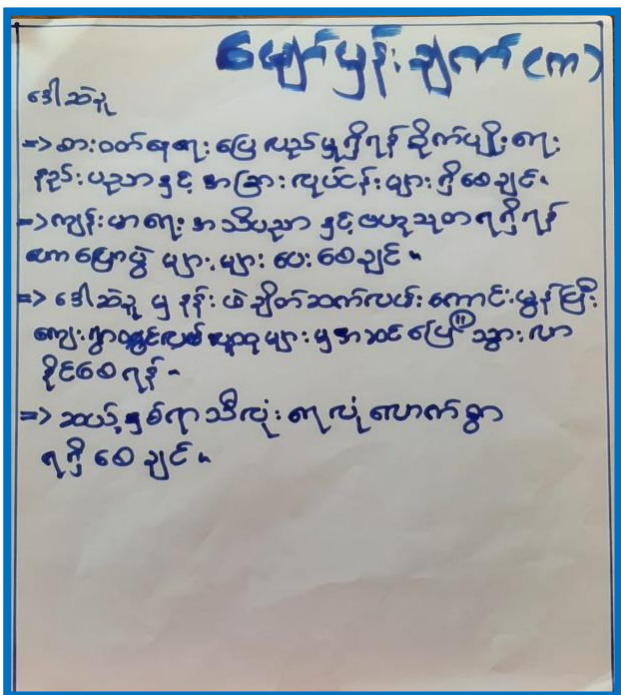 မျှော်မှန်းချက် (က)
ဒေါ်ဆဲနူ
=> စား၀တ်နေရေး ပြေလည်မှုရှိရန် စိုက်ပျိုးရေး
နည်းပညာနှင့် အခြားလုပ်ငန်းများ ရှိစေချင်။
=> ကျန်းမာရေး အသိပညာ နှင့် ဗဟုသုတရရှိရန်
ဟောပြောပွဲ များများ ပေးစေချင်။
=> ဒေါ်ဆဲနူ မှ နန်းဖဲ ချိတ်ဆက်လမ်းကောင်းမွန်ပြီး
ကျေးရွာတွင် ပြည်သူများမှ အဆင်ပြေ သွားလာ
နိုင်စေရန်။
=> ဆယ့်နှစ်ရာသီလုံး ရေလုံလောက်စွာ
ရရှိစေချင်။